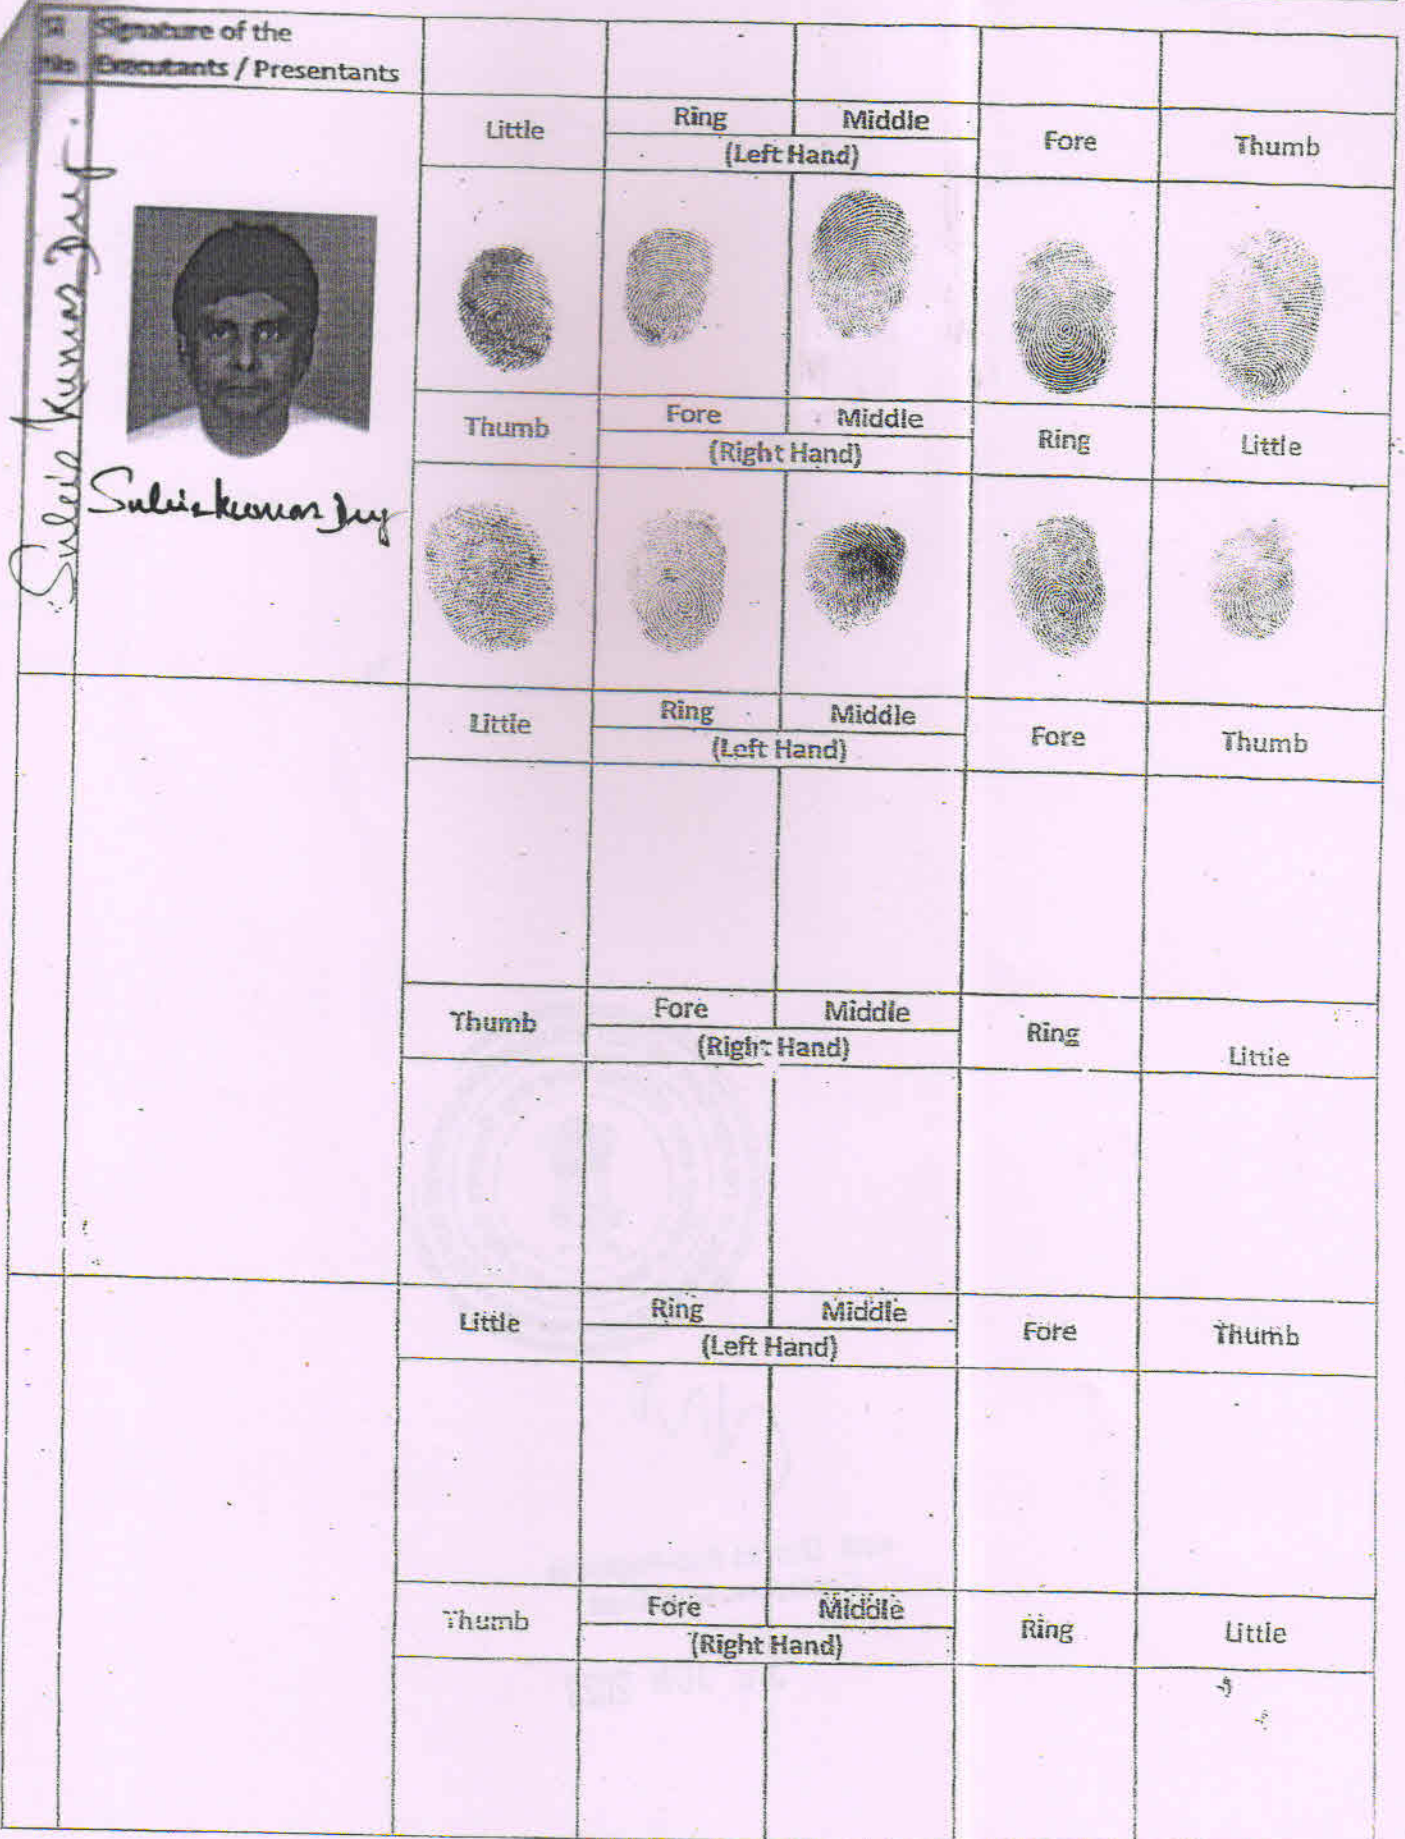 Sl Signature of the
No Executants / Presentants
Little Ring Middle Fore Thumb
(Left Hand)
Thumb Fore Middle Ring Little
(Right Hand)
Kumar
Kumar Dey
Little Ring Middle Fore Thumb
(Left Hand)
Thumb Fore Middle Ring Little
(Right Hand)
Little Ring Middle Fore Thumb
(Left Hand)
Thumb Fore Middle Ring Little
(Right Hand)